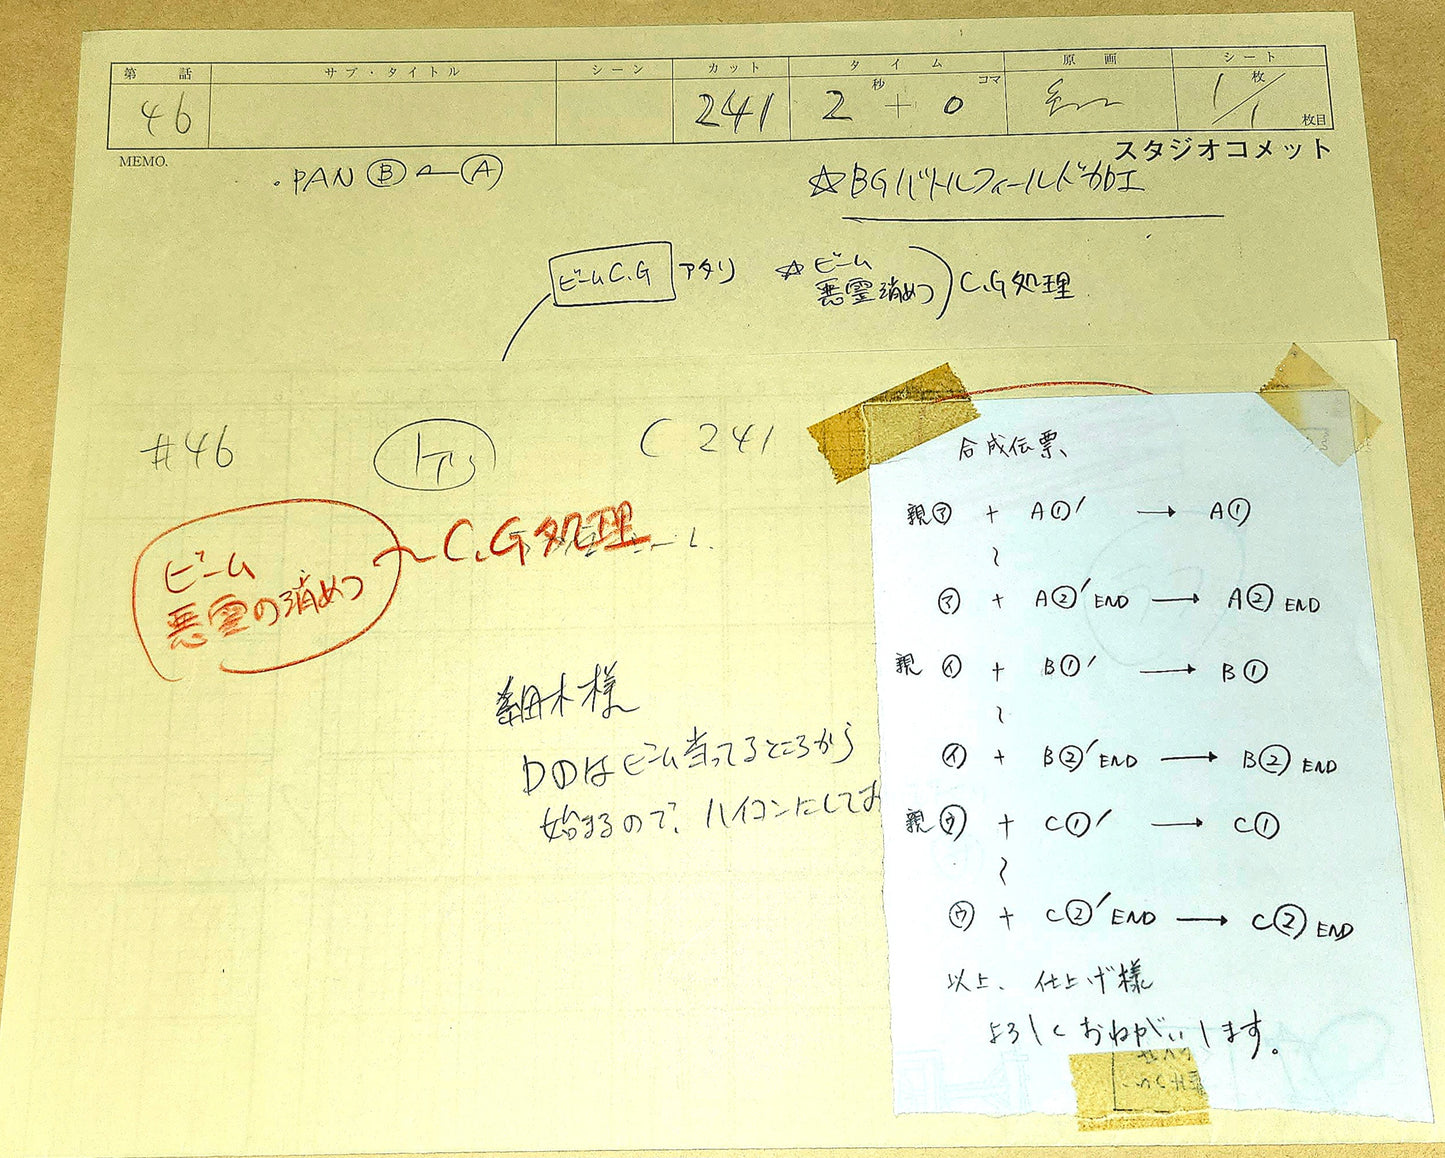 第 話 サブ・タイトル シーン カット タイム 原画 シート
46 241 2 秒 + 0 コマ 1 枚 / 1 枚目
MEMO. スタジオコメット
・PAN Ⓑ Ⓐ
☆BGバトルフィールド加工
ビームC.G アタリ
☆ビーム
悪霊消めつ C.G処理
#46 C 241
ビーム
悪霊の消めつ
C.G処理
細木様
D①はビーム当ってるところから
始まるので、ハイコンにしてお
合成伝票
親㋐ + A①′ → A①
~
㋐ + A②′END → A② END
親㋑ + B①′ → B①
~
㋑ + B②′END → B② END
親㋒ + C①′ → C①
~
㋒ + C②′END → C② END
以上、仕上げ様
よろしくおねがいします。